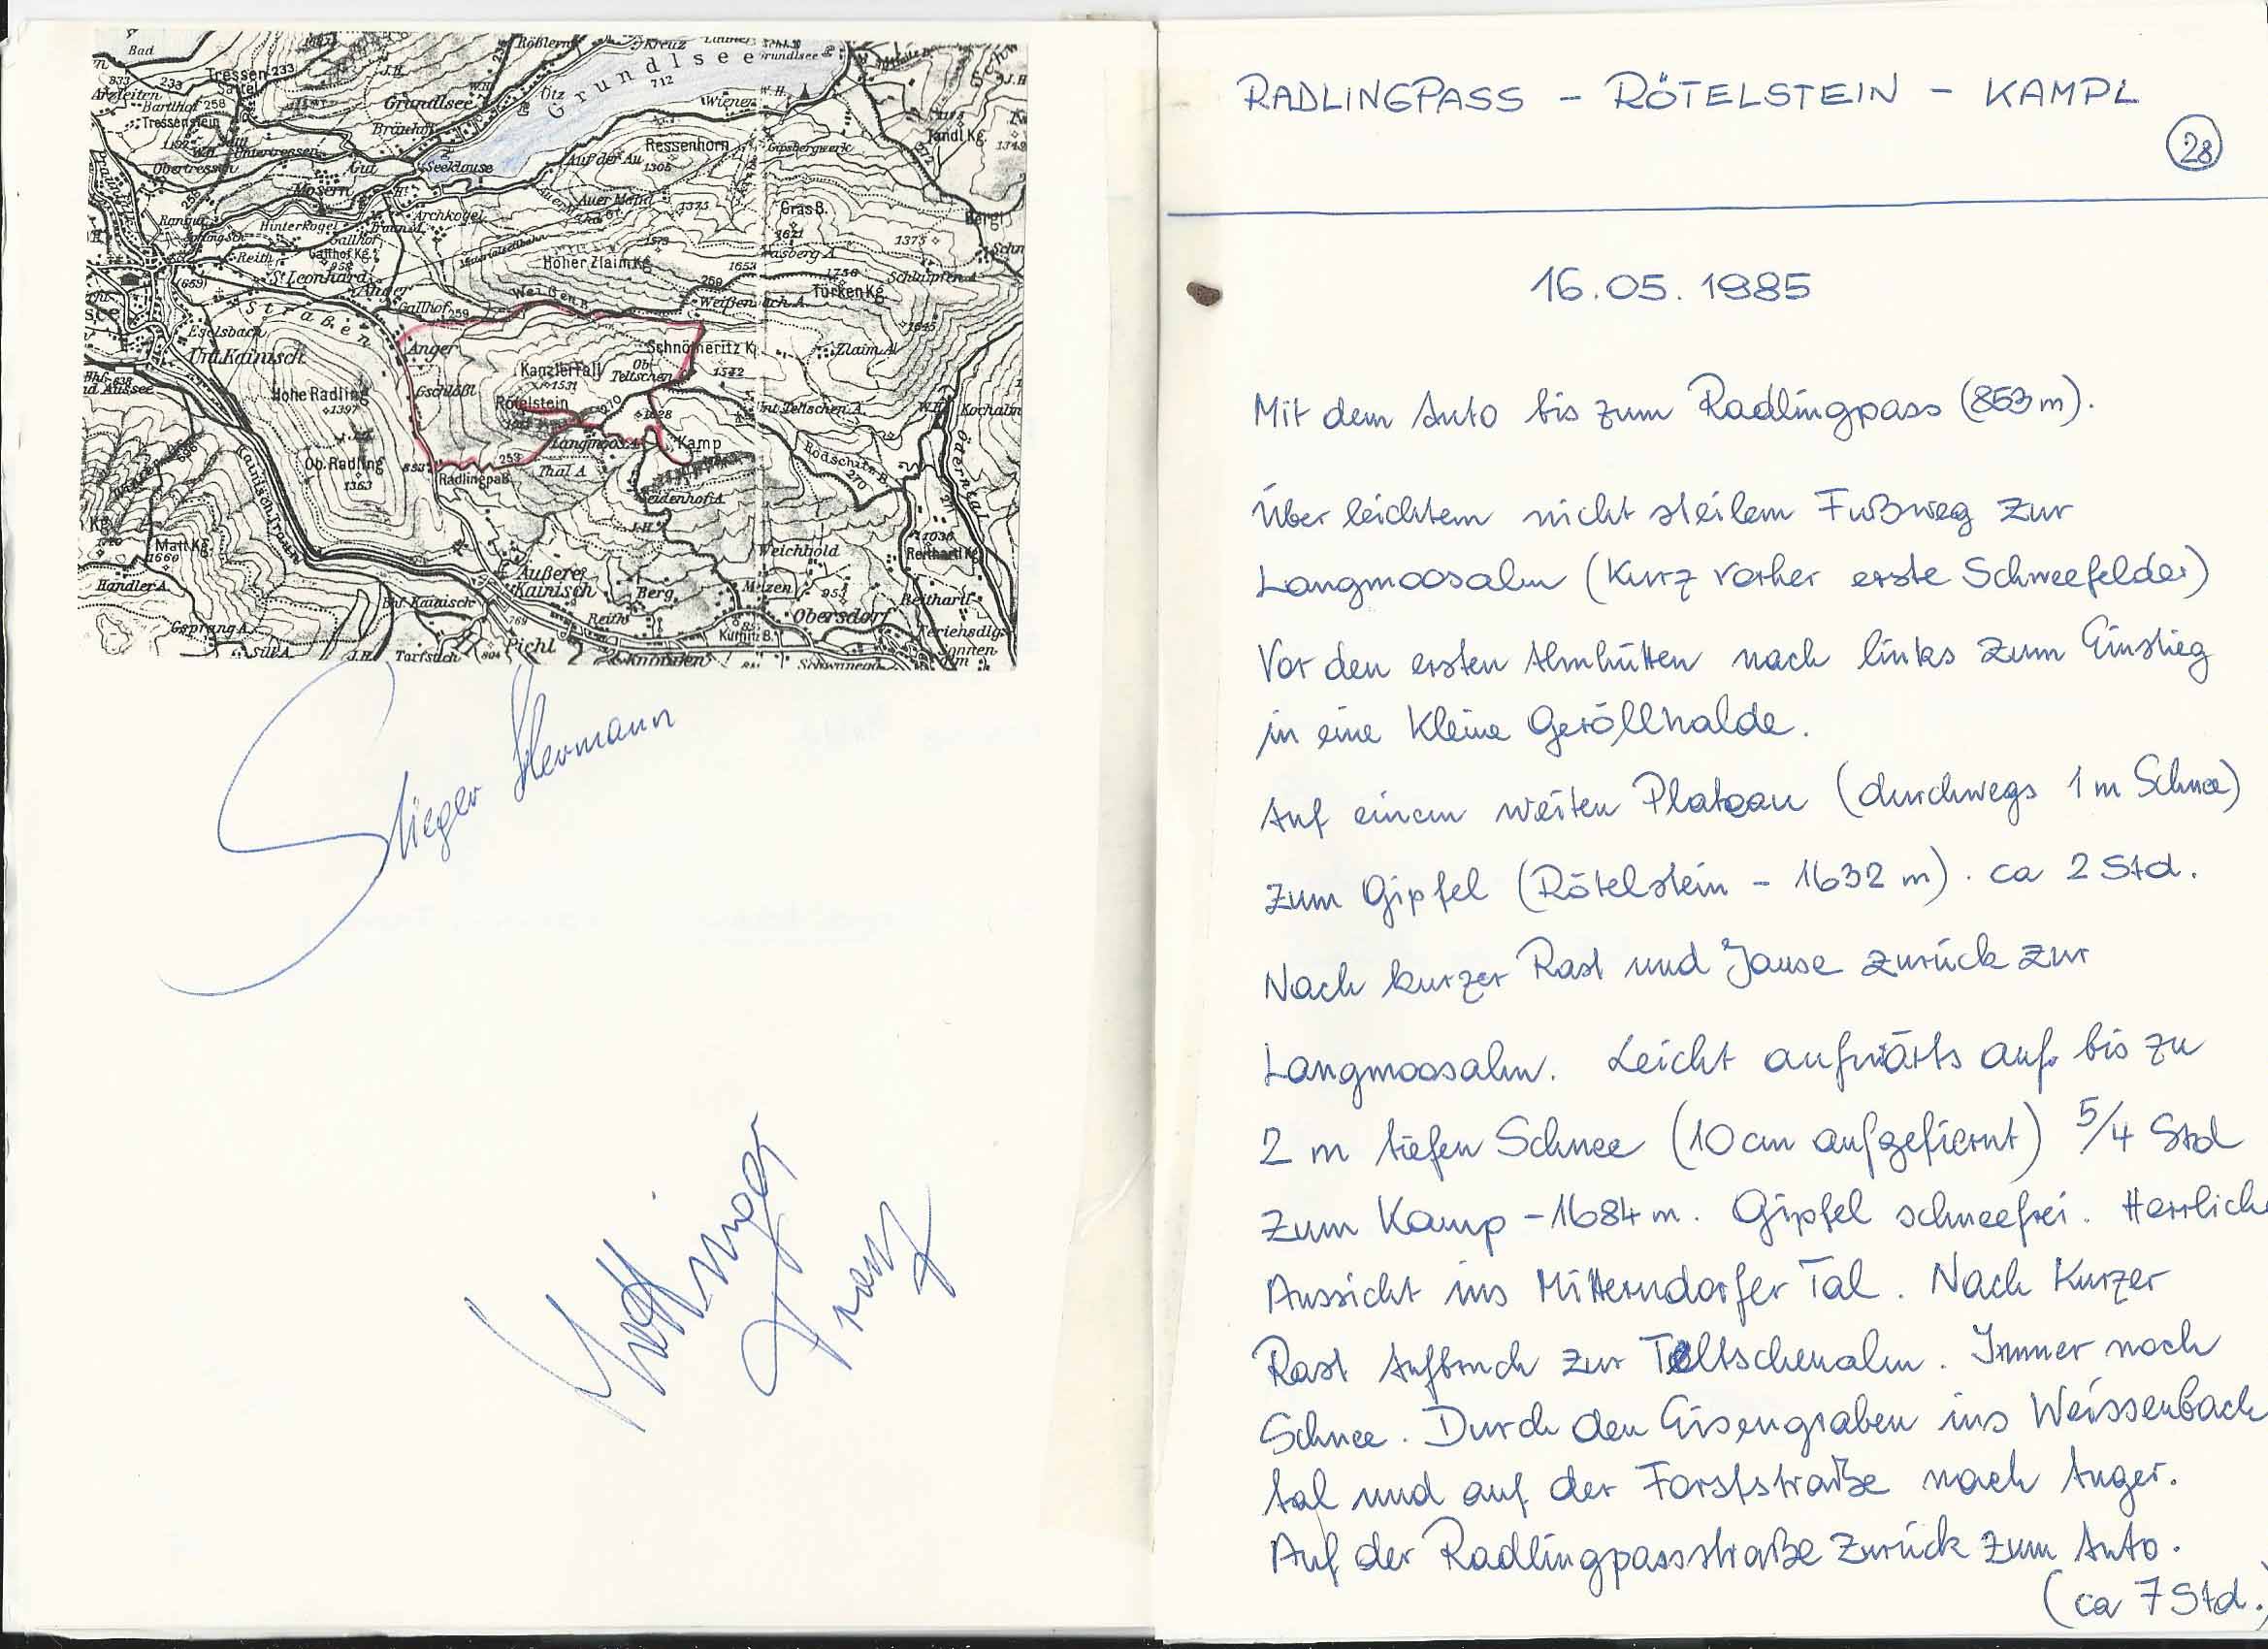 Bad
Rößlern
Kreuz
Grundlsee
712
Tressen
Sattel
233
Arzleiten
Bartlhof 258
Tressenstein
Grundlsee
Ötz
Wienern
Bräuhof
Untertressen
Obertressen
Gut
Seeklause
Auf der Au
Ressenhorn
1305
Gipsbergwerk
Tandl Kg.
272
Mosern
Archkogel
Auer Mahd
1375
Gras B.
Hinterkogel
Gallhof
Gallhof Kg.
Reith
St. Leonhard
Hoher Zlaim Kg.
1653
1375
Schlaipfen A.
Türken Kg.
Anger
Gallhof
259
Weißen B.
Weißenbach A.
Straßen
Eselsbach
Unt. Kainisch
Anger
Schnöderitz K.
1542
Zlaim A.
Kanzlerfall
1531
Ob. Teltschen
Hohe Radling
1397
Gschlößl
Rötelstein
1628
Unt. Teltschen A.
Kochalm
Langmoos A.
Kamp
Ödental
Ob. Radling
1363
853
Radlingpaß
253
Thal A.
Rödschitz B.
270
Kainisch Traun
Seidenhof A.
J.H.
Matt Kg.
1660
Weichbold
1036
Reithartl Kg.
Handler A.
Äußere
Kainisch
Berg
Mezen
953
Reithartl
Bhf. Kainisch
769
Reith
Obersdorf
Gsprang A.
Pichl
Knoppen
Torfstich
804
Stieger Hermann
Franz
RADLINGPASS – RÖTELSTEIN – KAMPL
28
16.05.1985
Mit dem Auto bis zum Radlingpass (853 m).
Über leichtem nicht steilem Fußweg zur
Langmoosalm (Kurz vorher erste Schneefelder)
Vor den ersten Almhütten nach links zum Einstieg
in eine kleine Geröllhalde.
Auf einem weiten Plateau (durchwegs 1 m Schnee)
zum Gipfel (Rötelstein – 1632 m). ca 2 Std.
Nach kurzer Rast und Jause zurück zur
Langmoosalm. Leicht aufwärts auf bis zu
2 m tiefen Schnee (10 cm aufgefirnt) 5/4 Std
zum Kamp – 1684 m. Gipfel schneefrei. Herrliche
Aussicht ins Mitterndorfer Tal. Nach Kurzer
Rast Aufbruch zur Teltschenalm. Immer noch
Schnee. Durch den Eisengraben ins Weissenbach
tal und auf der Forststraße nach Anger.
Auf der Radlingpassstraße zurück zum Auto.
(ca 7 Std.)